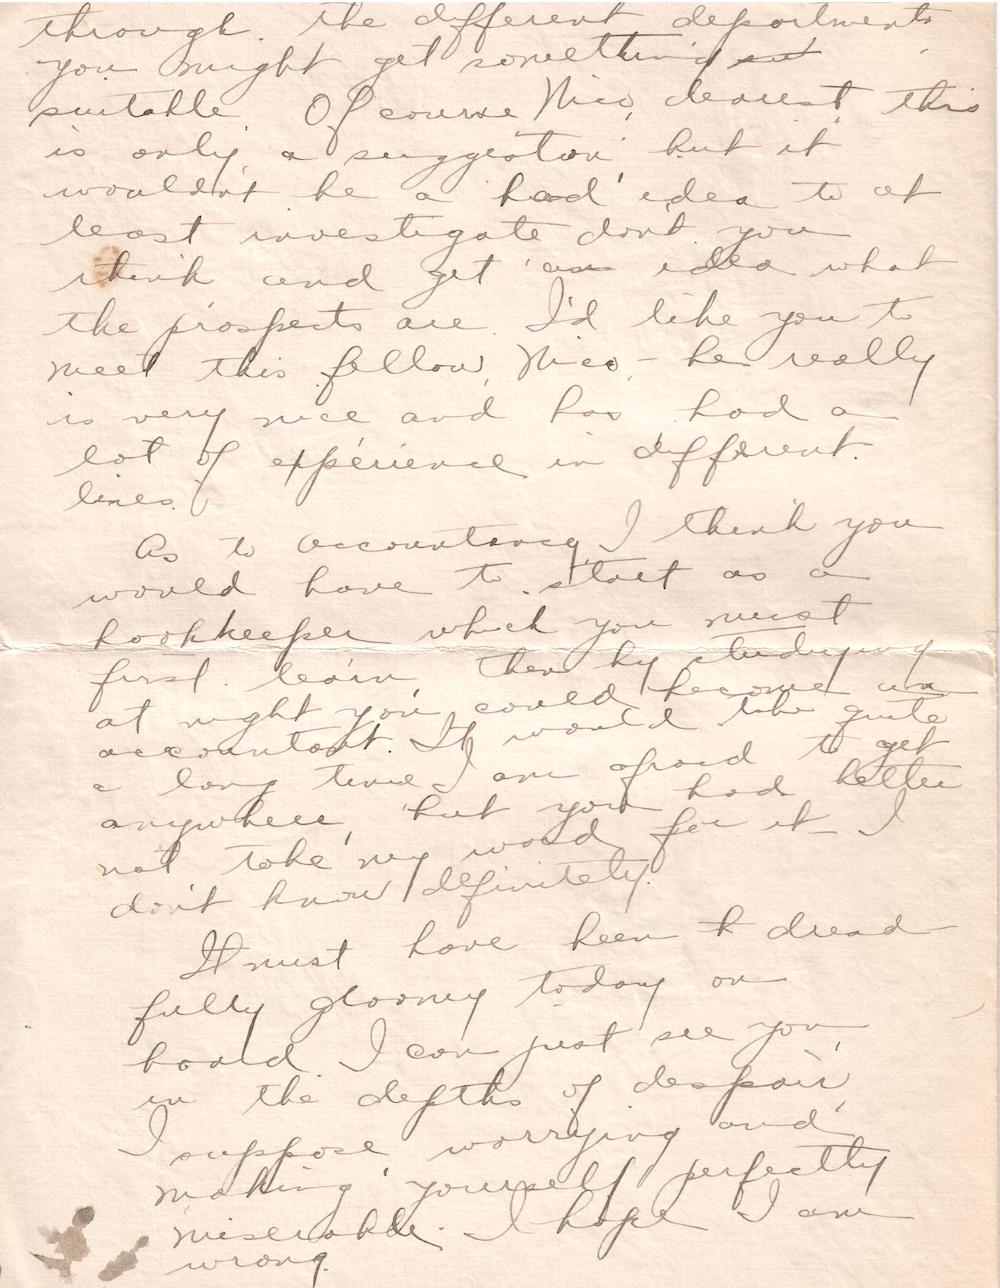 through the different departments
you might get something
suitable Of course Nico, dearest, this
is only a suggestion but it
wouldn't be a bad idea to at
least investigate don't you
think and get an idea what
the prospects are. I'd like you to
meet this fellow, Nico, - he really
is very nice and has had a
lot of experience in different
lines.
As to accountancy, I think you
would have to start as a
bookkeeper which you must
first learn, then by studying
at night you could become an
accountant. It would take quite
a long time I am afraid to get
anywhere, but you had better
not take my word for it - I
don't know definitely.
It must have been dread-
fully gloomy today on
board. I can just see you
in the depths of despair,
I suppose worrying and
making yourself perfectly
miserable. I hope I am
wrong.